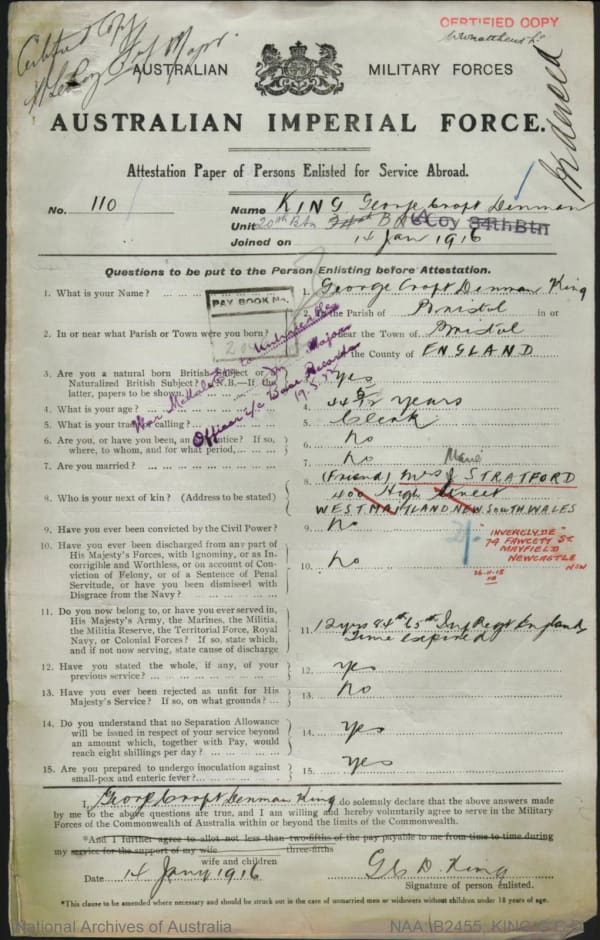 CERTIFIED COPY
Certified Copy
Major
AUSTRALIAN MILITARY FORCES
AUSTRALIAN IMPERIAL FORCE.
Attestation Paper of Persons Enlisted for Service Abroad.
No. 110 Name KING George Croft Denman
Unit 20th Btn C Coy 34th Btn
Joined on 14 Jan 1916
Questions to be put to the Person Enlisting before Attestation.
1. What is your Name? 1. George Croft Denman King
PAY BOOK No.
2. In or near what Parish or Town were you born? 2. In the Parish of Bristol in or
near the Town of Bristol
in the County of ENGLAND
3. Are you a natural born British Subject or a
Naturalized British Subject? (N.B.—If the
latter, papers to be shown) 3. Yes
4. What is your age? 4. 44 years
5. What is your trade or calling? 5. Clerk
6. Are you, or have you been, an Apprentice? If so,
where, to whom, and for what period 6. No
Officer i/c Base Records
7. Are you married? 7. No
8. Who is your next of kin? (Address to be stated) 8. (Friend) Mrs J STRATFORD
400 High Street
WEST MAITLAND NEW SOUTH WALES
"INVERCLYDE"
74 FAWCETT ST.
MAYFIELD
NEWCASTLE
NSW
9. Have you ever been convicted by the Civil Power? 9. No
10. Have you ever been discharged from any part of
His Majesty's Forces, with Ignominy, or as In-
corrigible and Worthless, or on account of Con-
viction of Felony, or of a Sentence of Penal
Servitude, or have you been dismissed with
Disgrace from the Navy? 10. No
11. Do you now belong to, or have you ever served in,
His Majesty's Army, the Marines, the Militia,
the Militia Reserve, the Territorial Force, Royal
Navy, or Colonial Forces? If so, state which,
and if not now serving, state cause of discharge 11. 12 yrs 84th 65th Inf Regt England
Time expired
12. Have you stated the whole, if any, of your
previous service? 12. Yes
13. Have you ever been rejected as unfit for His
Majesty's Service? If so, on what grounds? 13. No
14. Do you understand that no Separation Allowance
will be issued in respect of your service beyond
an amount which, together with Pay, would
reach eight shillings per day? 14. Yes
15. Are you prepared to undergo inoculation against
small-pox and enteric fever? 15. Yes
I, George Croft Denman King do solemnly declare that the above answers made
by me to the above questions are true, and I am willing and hereby voluntarily agree to serve in the Military
Forces of the Commonwealth of Australia within or beyond the limits of the Commonwealth.
*And I further agree to allot not less than two-fifths of the pay payable to me from time to time during
three-fifths
my service for the support of my wife
wife and children
Date 14 Jany 1916 G C D. King
Signature of person enlisted.
*This clause to be amended where necessary and should be struck out in the case of unmarried men or widowers without children under 18 years of age.
National Archives of Australia NAA: B2455, KING G C D